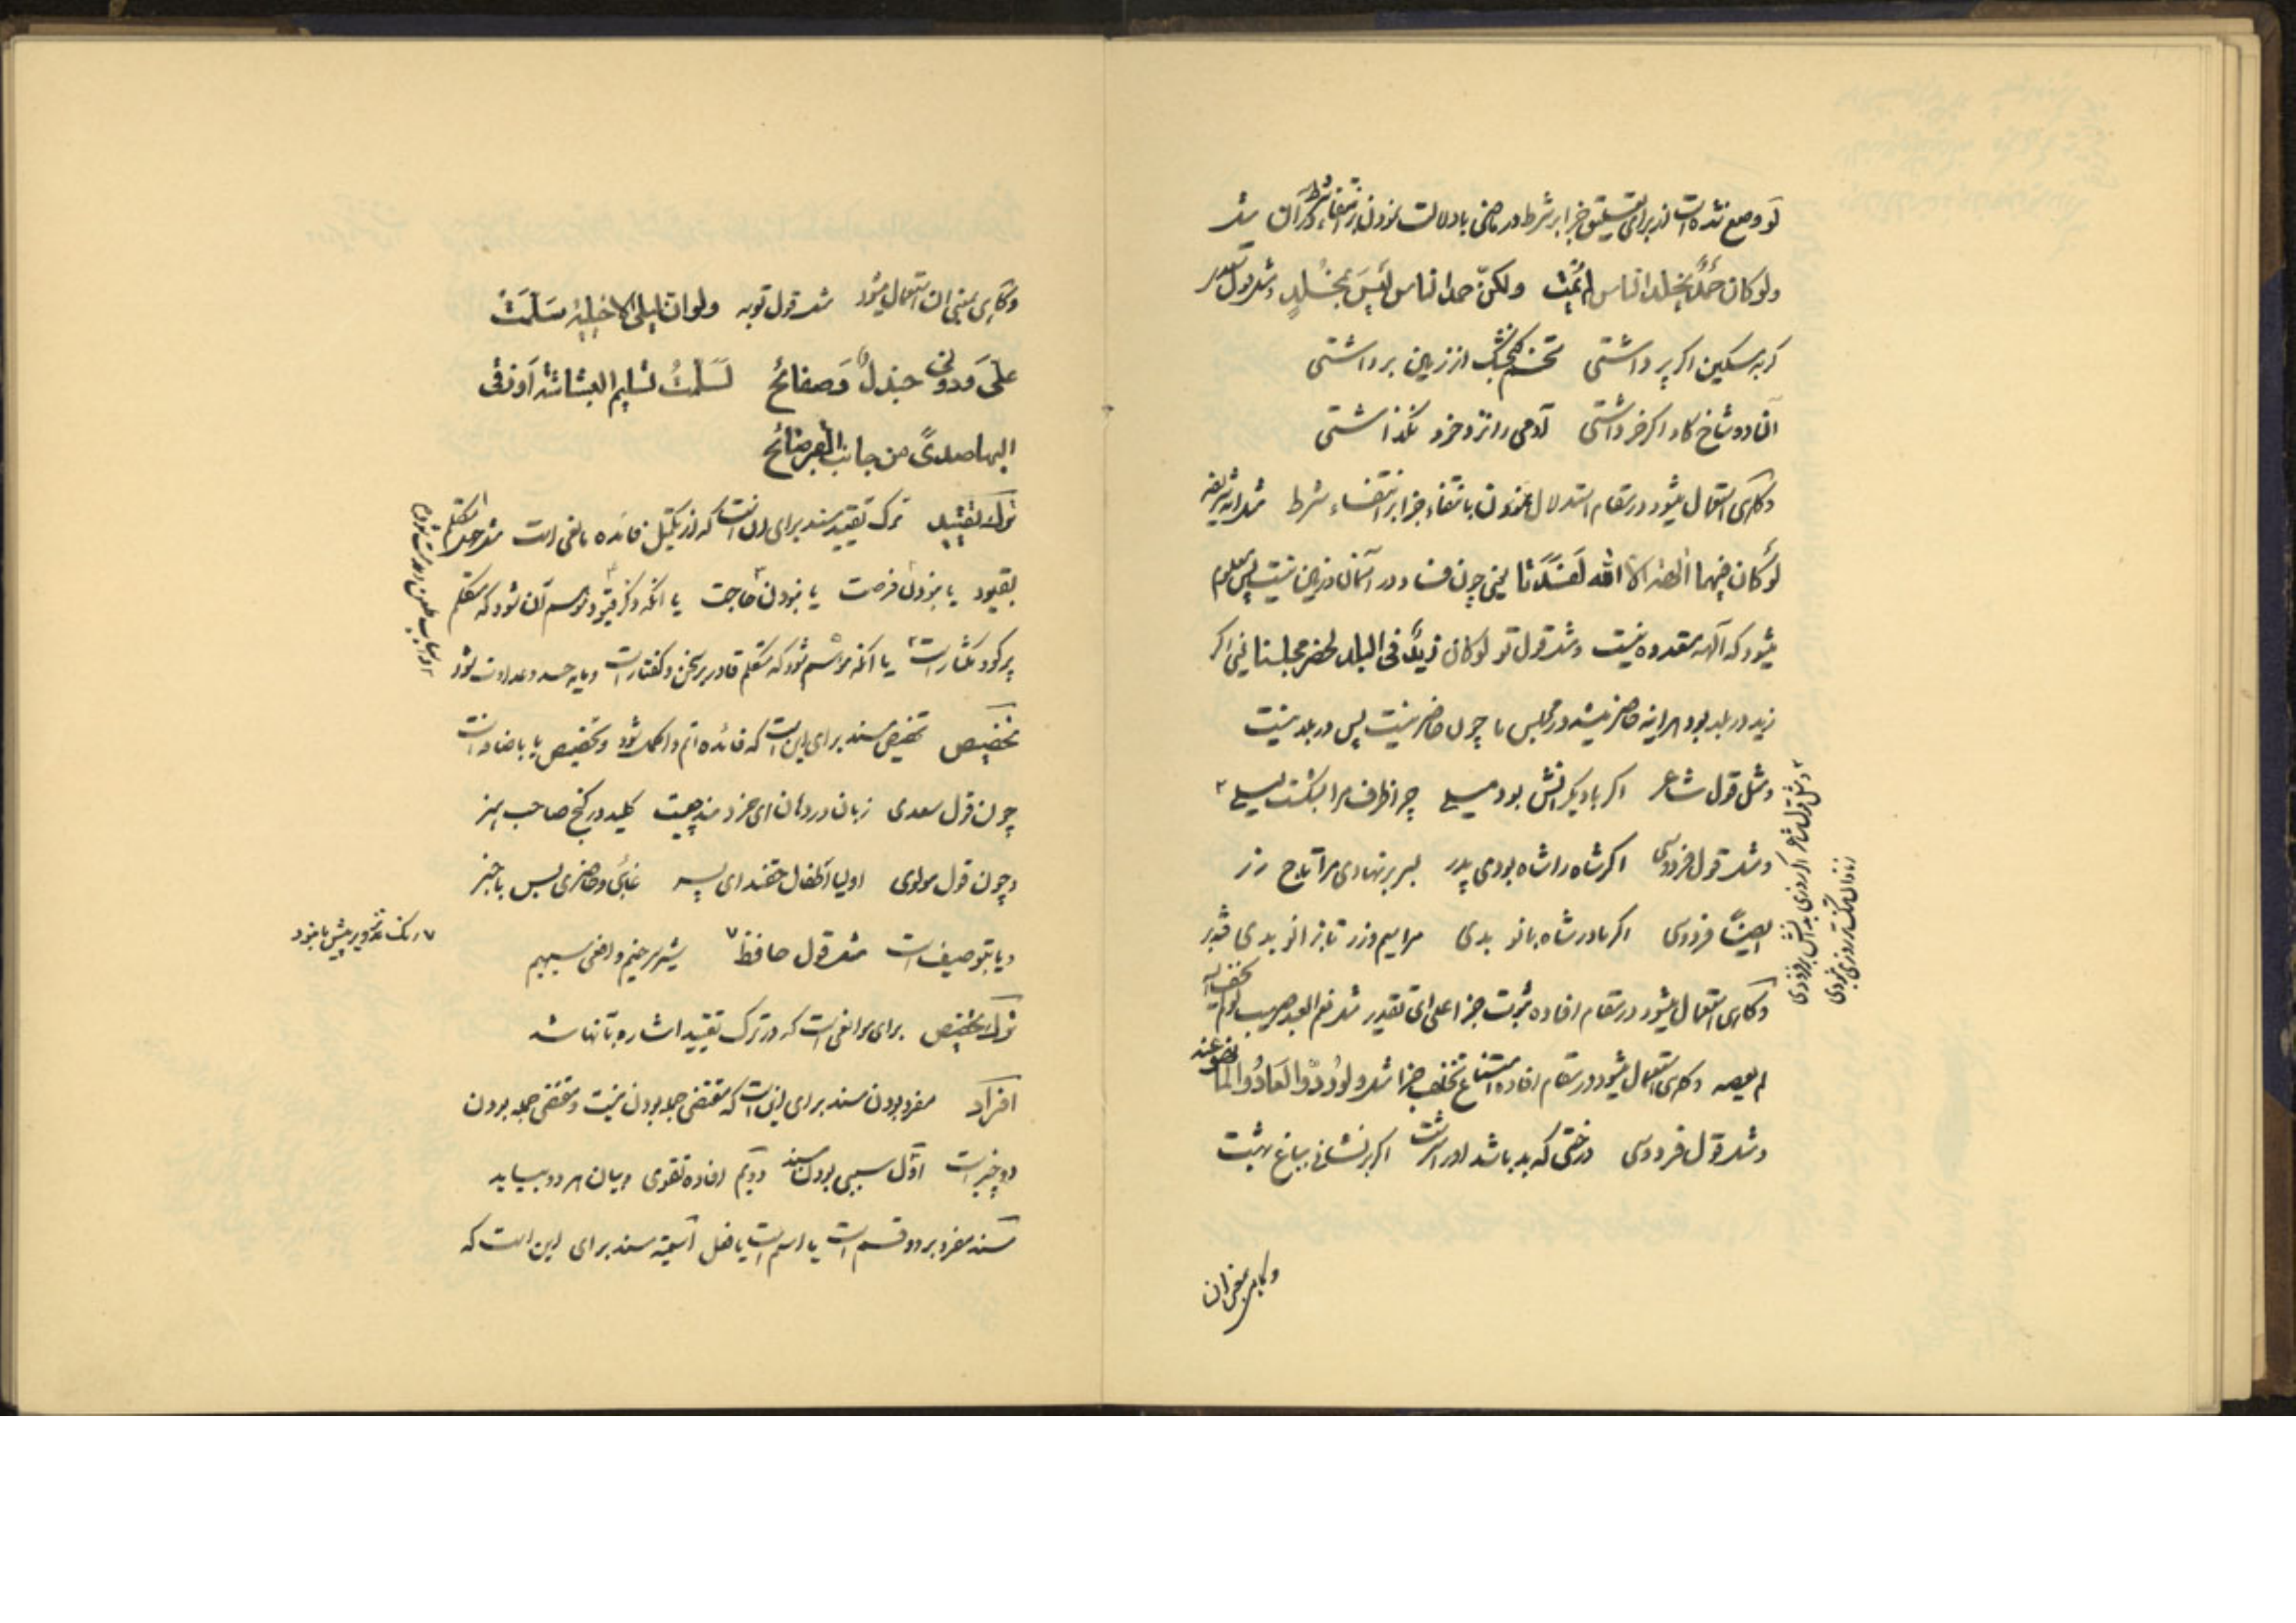 لَو وضع شده است از برای تعلیق جزا بر شرط در ماضی با دلالت نمودن بر انتفاء شرط در آن مثل
ولو کان حَمدٌ یخلد الناس لم یَمُت ولکنّ حمد الناس لَیسَ بمُخلِدٍ و مثل قول سعدی
کربه مسکین اکر پر داشتی تخم کنجشک از زمین برداشتی
آن دو شاخ کاو اکر خر داشتی آدمی را نزد خود نکذاشتی
و کاهی استعمال میشود در مقام استدلال نمودن بانتفاء جزا بر انتفاء شرط مثل آیه شریفه
لَو کان فیهما الهة الا الله لفسدتا یعنی چون فساد در آسمان و زمین نیست پس معلوم
میشود که آلهه متعدده نیست و مثل قول تو لو کان زیدٌ فی البلد لحضر مجلسنا یعنی اکر
زید در بلد بود هراینه حاضر میشد در مجلس ما چون حاضر نیست پس در بلد نیست
و مثل قول شاعر اکر با دیکرانش بود میلی چرا ظرف مرا بشکست لیلی ۲
و مثل قول فردوسی اکر شاه را شاه بودی پدر بسر بر نهادی مرا تاج زر
ایضاً فردوسی اکر مادر شاه بانو بدی مرا سیم و زر تا بزانو بدی
و کاهی استعمال میشود در مقام افاده ثبوت جزا علی ای تقدیر مثل نعم العبد صهیب لو لم یخف الله
لم یعصه و کاهی استعمال میشود در مقام افاده امتناع تخلف جزا مثل ولو رُدّوا لعادُوا لما نهوا عنه
و مثل قول فردوسی درختی که بد باشد او را سرشت اکر بر نشانی بباغ بهشت
و کاهی بمعنی ان
۲ و مثل قول شاعر اکر روزی بدانش بر فزودی
ز نادان تنک تر روزی نبودی
و کاهی بمعنی ان استعمال میشود مثل قول توبه ولو ان لیلی الاخیلیة سَلَّمَتْ
علیّ وَدونی جندلٌ وَصفائحُ لَسَلَّمتُ تسلیم البشاشة أو زقی
الیها صدیً من جانب القبر صائح
ترک تقیید ترک تقیید مسند برای این است که از تکمیل فائده مانعی است مثل جهل متکلم
بقیود یا نبودن فرصت یا نبودن حاجت یا آنکه ذکر قیود موهم آن شود که متکلم
پرکو و مکثار است یا آنکه موهم شود که متکلم قادر بر سخن و کفتار است و مایه حسد و عداوت شود
تخصیص تخصیص مسند برای این است که فائده اتم و اکمل شود و تخصیص یا باضافه است
چون قول سعدی زبان در دهان ای خردمند چیست کلید در کنج صاحب هنر
و چون قول مولوی اولیا اطفال حقند ای پسر غائبی و حاضری بس با خبر
و یا بتوصیف است مثل قول حافظ ۷ شیر سرخیم و افعی سیهیم
۷ رنک تزویر پیش ما نبود
ترک تخصیص برای موانعی است که در ترک تقیید اشاره بآنها شد
افراد مفرد بودن مسند برای این است که مقتضی جمله بودن نیست و مقتضی جمله بودن
دو چیز است اوّل سببی بودن مسند دویّم افاده تقوی و بیان هر دو بیاید
مسند مفرد بر دو قسم است یا اسم است یا فعل اسمیّة مسند برای این است که